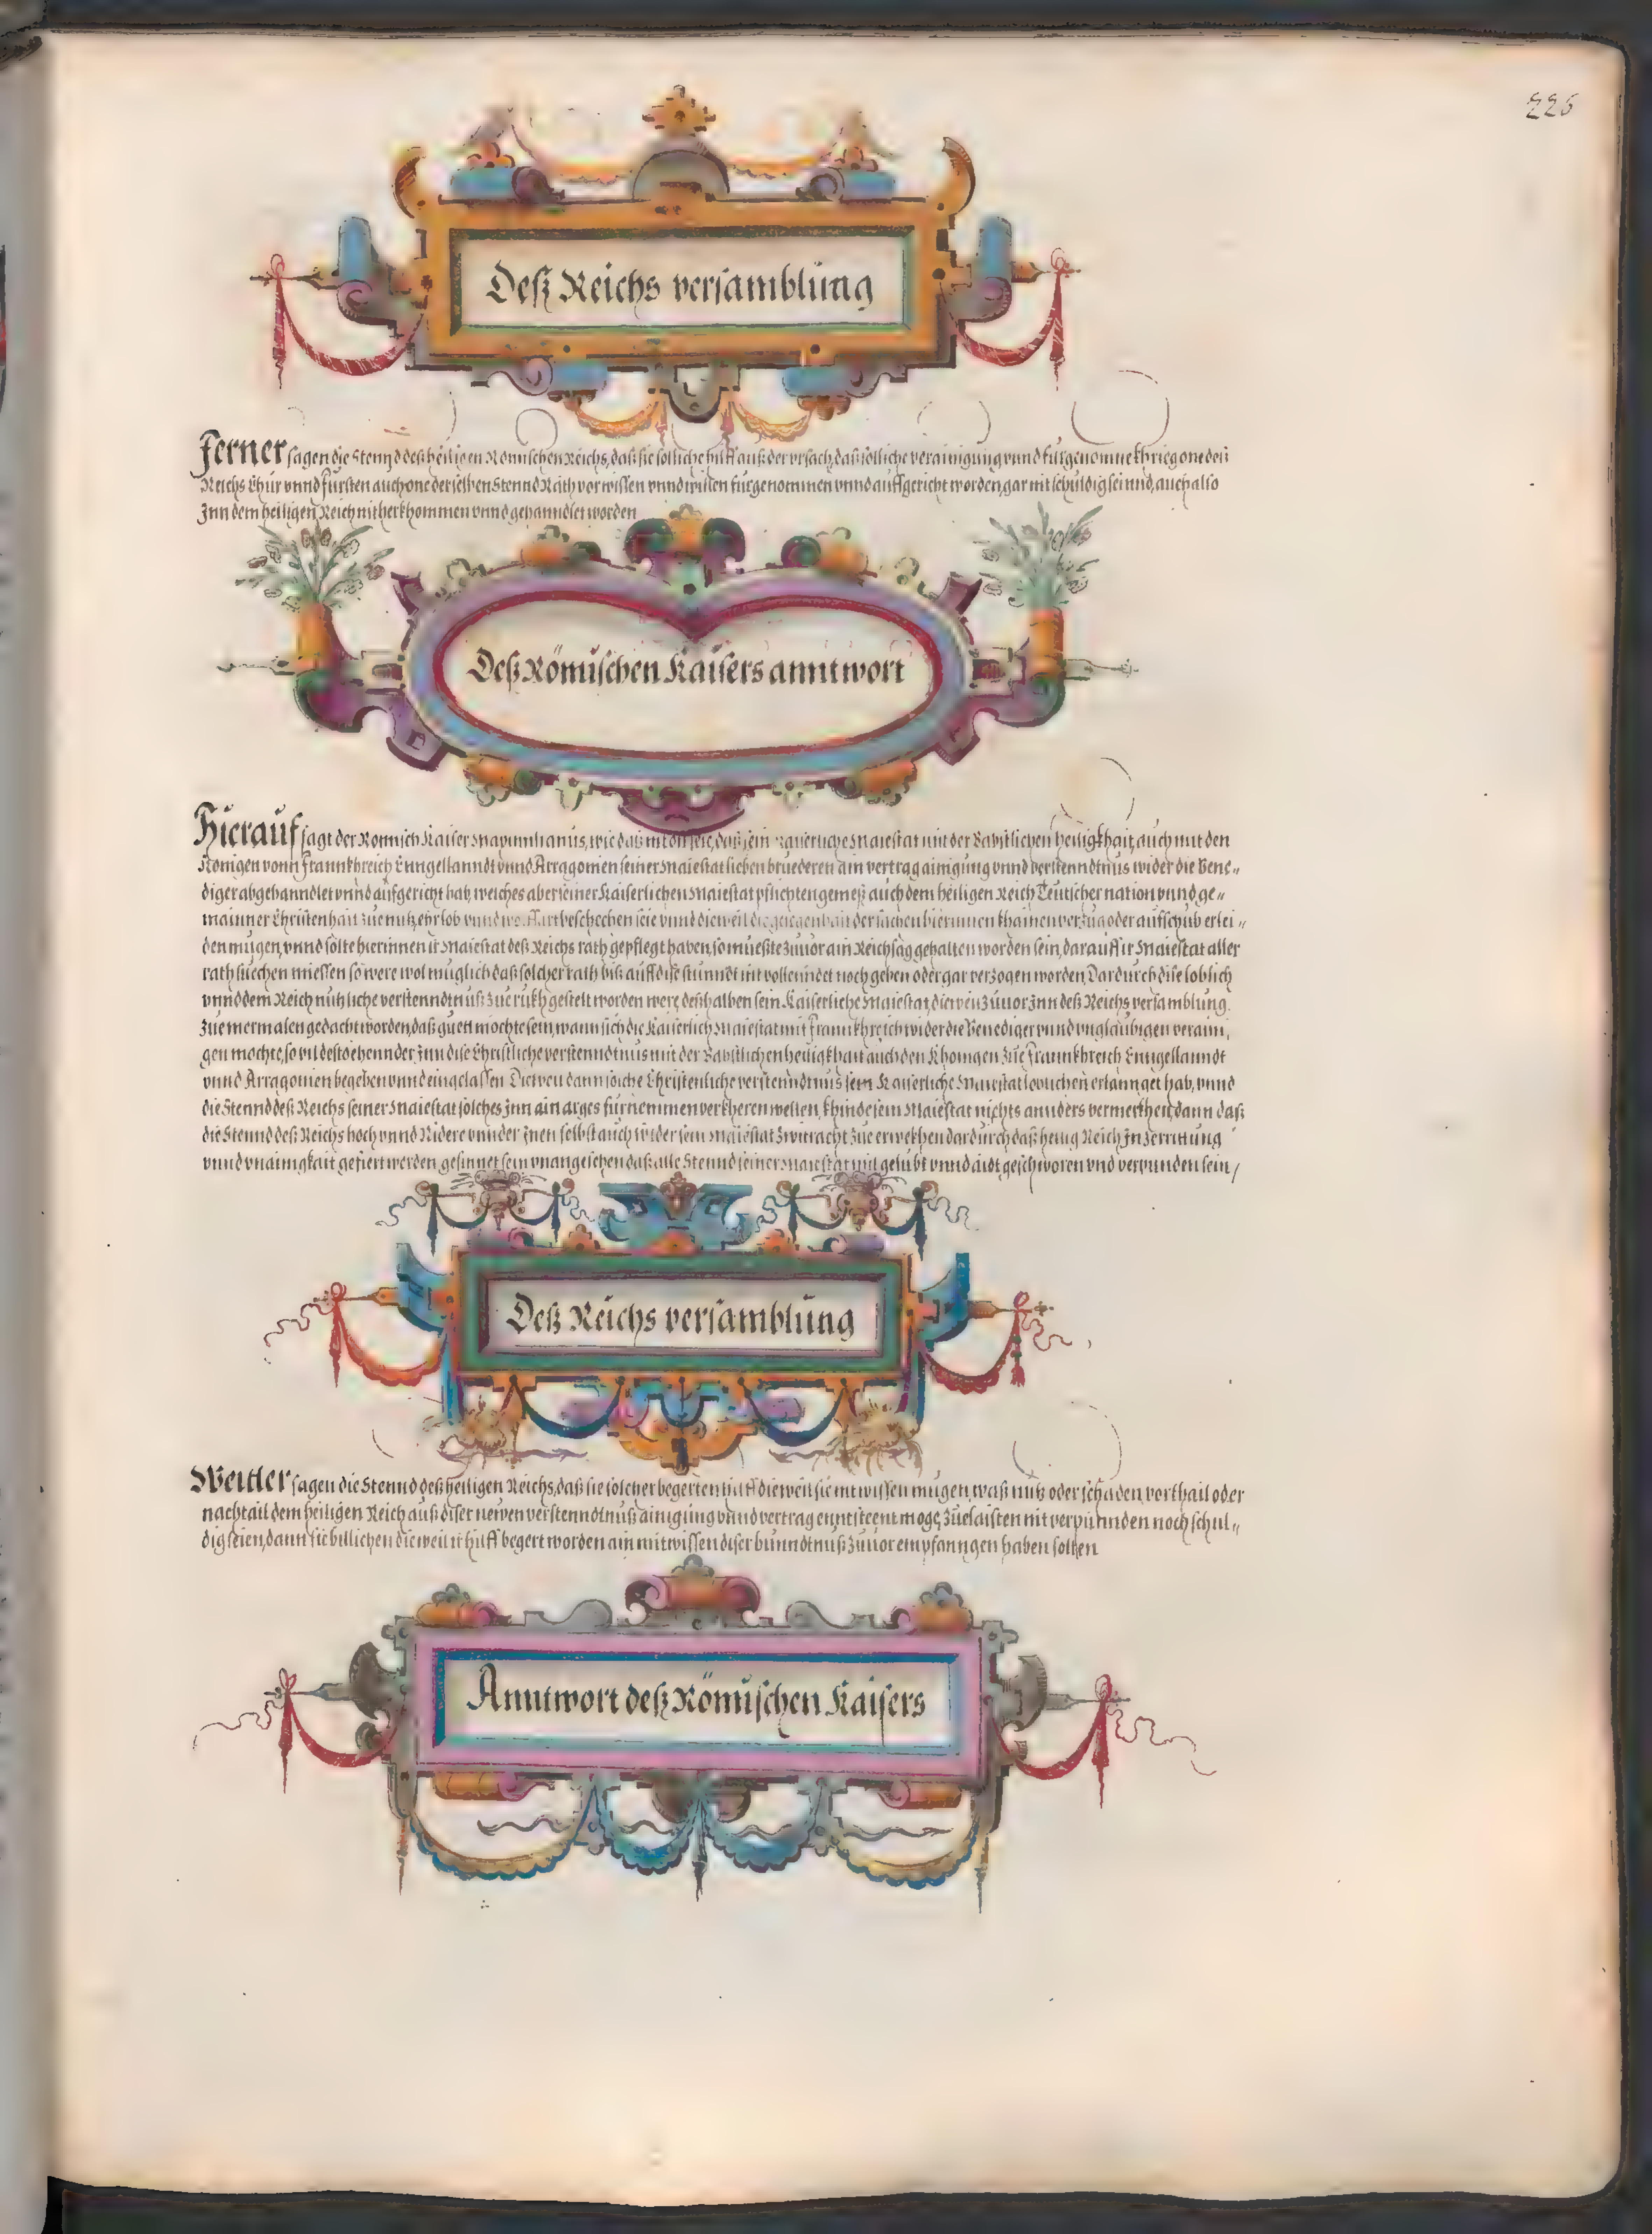 225
Deß Reichs versamblung
Ferner sagen die Stennd deß heiligen Römischen Reichs, daß sie solliche hilff auß der ursach, daß solliche verainigung unnd fürgenomne khrieg one deß
Reichs Chur unnd fürsten auch one derselben Stennd Räth vorwissen unnd willen fürgenommen unnd auffgericht worden, gar nit schuldig seinnd, auch also
Inn dem heiligen Reich nit herkhommen unnd gehanndlet worden
Deß Römischen Kaisers anntwort
Hierauf sagt der Römisch Kaiser Maximilianus, wie daß nit on seie, daß sein Kaiserliche Maiestat mit der Bäbstlichen heiligkhait, auch mit den
Königen vonn Frannkhreich Enngellanndt unnd Arragonien seiner Maiestat lieben brüederen ain vertrag ainigung unnd verstenndtnus wider die Vene„
diger abgehanndlet unnd aufgericht hab, welches aber seiner Kaiserlichen Maiestat pflichten gemeß auch dem heiligen Reich Teutscher nation unnd ge„
mainer Christenhait zue nutz, ehr lob unnd beschechen seie unnd dieweil die gelegenhait der sachen hierinnen khainen verzug oder aufschub erlei„
den mugen, unnd solte hierinnen ir Maiestat deß Reichs rath gepflegt haben, so müeßte zuvor ain Reichstag gehalten worden sein, darauff ir Maiestat aller
rath suechen miessen so were wol muglich daß solcher rath biß auff dise stunndt nit vollenndet noch geben oder gar verzogen worden Dardurch dise loblich
unnd dem Reich nutzliche verstenndtnuß zue rukh gestelt worden were, deßhalben sein Kaiserliche Maiestat, dieweil zuvor Inn deß Reichs versamblung
zue mermalen gedacht worden, daß guett möchte sein, wann sich die Kaiserlich Maiestat mit Frannkhreich wider die Venediger unnd unglaubigen verain„
gen mochte, so vil desto ehennder Inn dise Christliche verstenndtnus mit der Bäbstlichen heiligkhait auch den Khönigen zue Frannkhreich Enngellanndt
unnd Arragonien begeben unnd eingelassen Dieweil dann solche Christenliche verstenndtnus sein Kaiserliche Maiestat erlannget hab, unnd
die Stennd deß Reichs seiner Maiestat solches Inn ain arges fürnemmen verkheren wellen, khinde sein Maiestat nichts annders vermerkhen, dann daß
die Stennd deß Reichs hoch unnd Nidere unnder Inen selbst auch wider sein Maiestat zwitracht zue erwekhen dardurch daß heilig Reich In Zerrittung
unnd unainigkait gefiert werden gesinnet sein unangesehen daß alle Stennd seiner Maiestat mit gelübt unnd aidt geschworen und verpunden sein /
Deß Reichs versamblung
Weitter sagen die Stennd deß heiligen Reichs, daß sie solcher begerten hilff dieweil sie nit wissen mügen, waß nutz oder schaden, vorthail oder
nachtail dem heiligen Reich auß diser newen verstenndtnuß ainigung unnd vertrag enntsteen möge, zue laisten nit verpunnden noch schul„
dig seien, dann sie billichen dieweil ir hilff begert worden ain mitwissen diser bunndtnuß zuvor empfanngen haben solten
Anntwort deß Römischen Kaisers